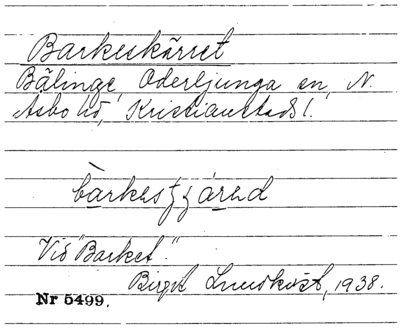 Barkeskärret
Bälinge, Oderljunga sn, N.
Åsbo hd, Kristianstads l.
Vid "Barket."
Birgit Lundkvist, 1938.
Nr 5499.